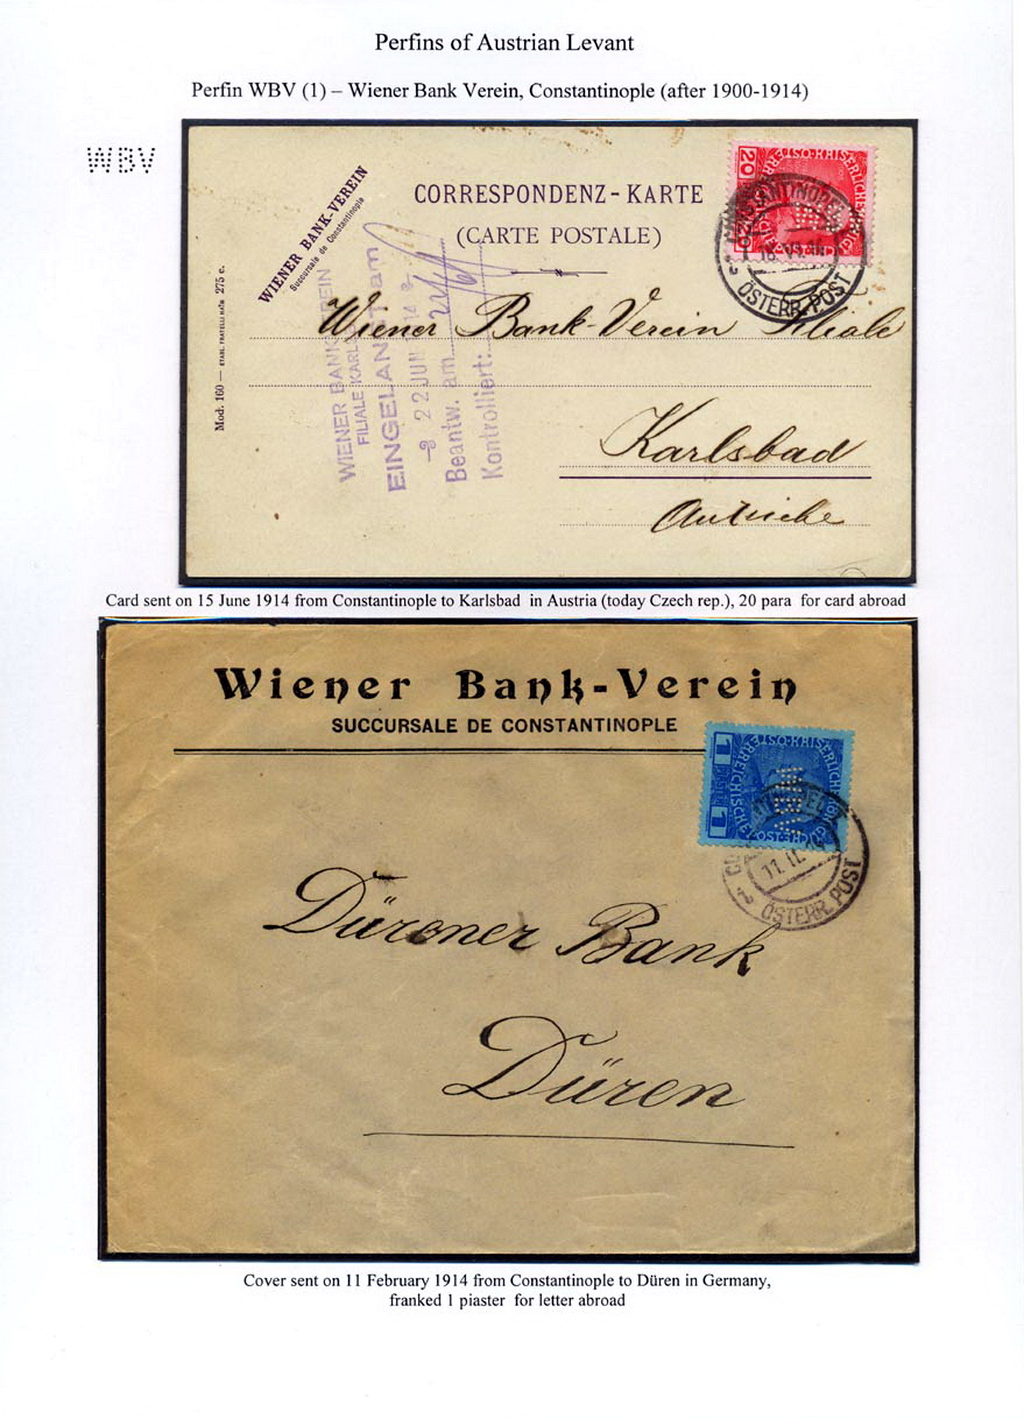 Perfins of Austrian Levant
Perfin WBV (1) – Wiener Bank Verein, Constantinople (after 1900-1914)
WBV
WIENER BANK-VEREIN
Succursale de Constantinople
CORRESPONDENZ-KARTE
(CARTE POSTALE)
20
20
ÖSTERR. POST
Mod. 160 — 275 c.
Wiener Bank-Verein Filiale
Karlsbad
Autriche
WIENER BANK-VEREIN
FILIALE KARL
EINGELANGT am
22 JUN 14
Beantw. am
Kontrolliert:
Card sent on 15 June 1914 from Constantinople to Karlsbad in Austria (today Czech rep.), 20 para for card abroad
Wiener Bank-Verein
SUCCURSALE DE CONSTANTINOPLE
1
1
11. II.
ÖSTERR. POST
Dürener Bank
Düren
Cover sent on 11 February 1914 from Constantinople to Düren in Germany,
franked 1 piaster for letter abroad